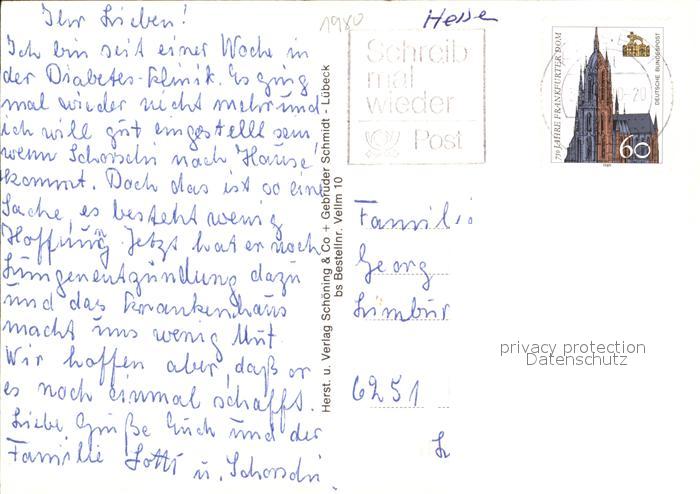 Ihr Lieben!
Ich bin seit einer Woche in
der Diabetes-Klinik. Es ging
mal wieder nicht mehr und
ich will gut eingestellt sein
wenn Schorschi nach Hause
kommt. Doch das ist so eine
Sache, es besteht wenig
Hoffnung. Jetzt hat er noch
Lungenentzündung dazu
und das Krankenhaus
macht uns wenig Mut.
Wir hoffen aber, daß er
es noch einmal schafft.
Liebe Grüße Euch und der
Familie Lotti u. Schorschi
Herst. u. Verlag Schöning & Co + Gebrüder Schmidt - Lübeck
bs Bestellnr. Vellm 10
1980
Hessen
Schreib
mal
wieder
Post
750 JAHRE FRANKFURTER DOM
DEUTSCHE BUNDESPOST
60
1989
Famili
Georg
Limbur
6251
L
privacy protection
Datenschutz